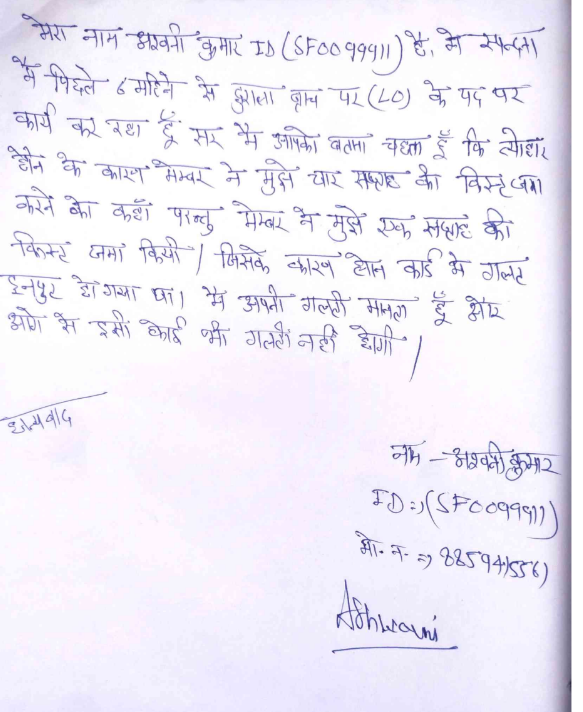 मेरा नाम अश्वनी कुमार ID (SF0099911) है, मे स्पन्दना
मै पिछले 6 महिने से दुराला ब्रांच पर (LO) के पद पर
कार्य कर रहा हूँ सर मै आपको बताना चहता हूँ कि त्योहार
होने के कारण मेम्बर ने मुझे चार सप्ताह की किस्ट जमा
करने को कहाँ परन्तु मेम्बर ने मुझे एक सप्ताह की
किस्ट जमा कियी / जिसके कारण लोन कार्ड मे गलत
इनपुट हो गया था। मै अपनी गलती मानता हूँ और
आगे से इसी कोई भी गलती नहीं होगी /
धन्यवाद
नाम - अश्वनी कुमार
ID => (SF0099911)
मो. न. => 8859415561
Ashwani